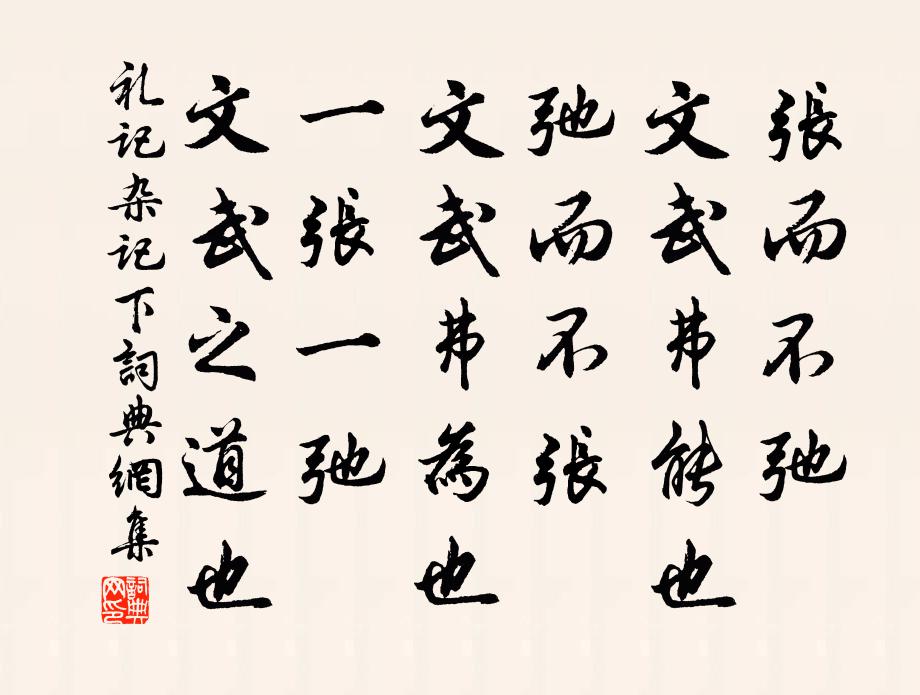 張而不弛
文武弗能也
弛而不張
文武弗為也
一張一弛
文武之道也
礼记杂记下詞典網集
詞典网印